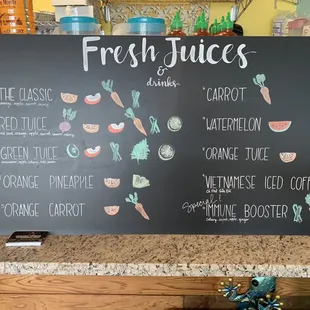 Fresh Juices
& drinks
THE CLASSIC
RED JUICE
GREEN JUICE
*ORANGE PINEAPPLE
*ORANGE CARROT
*CARROT
*WATERMELON
*ORANGE JUICE
*VIETNAMESE ICED COFF
Special! *IMMUNE BOOSTER